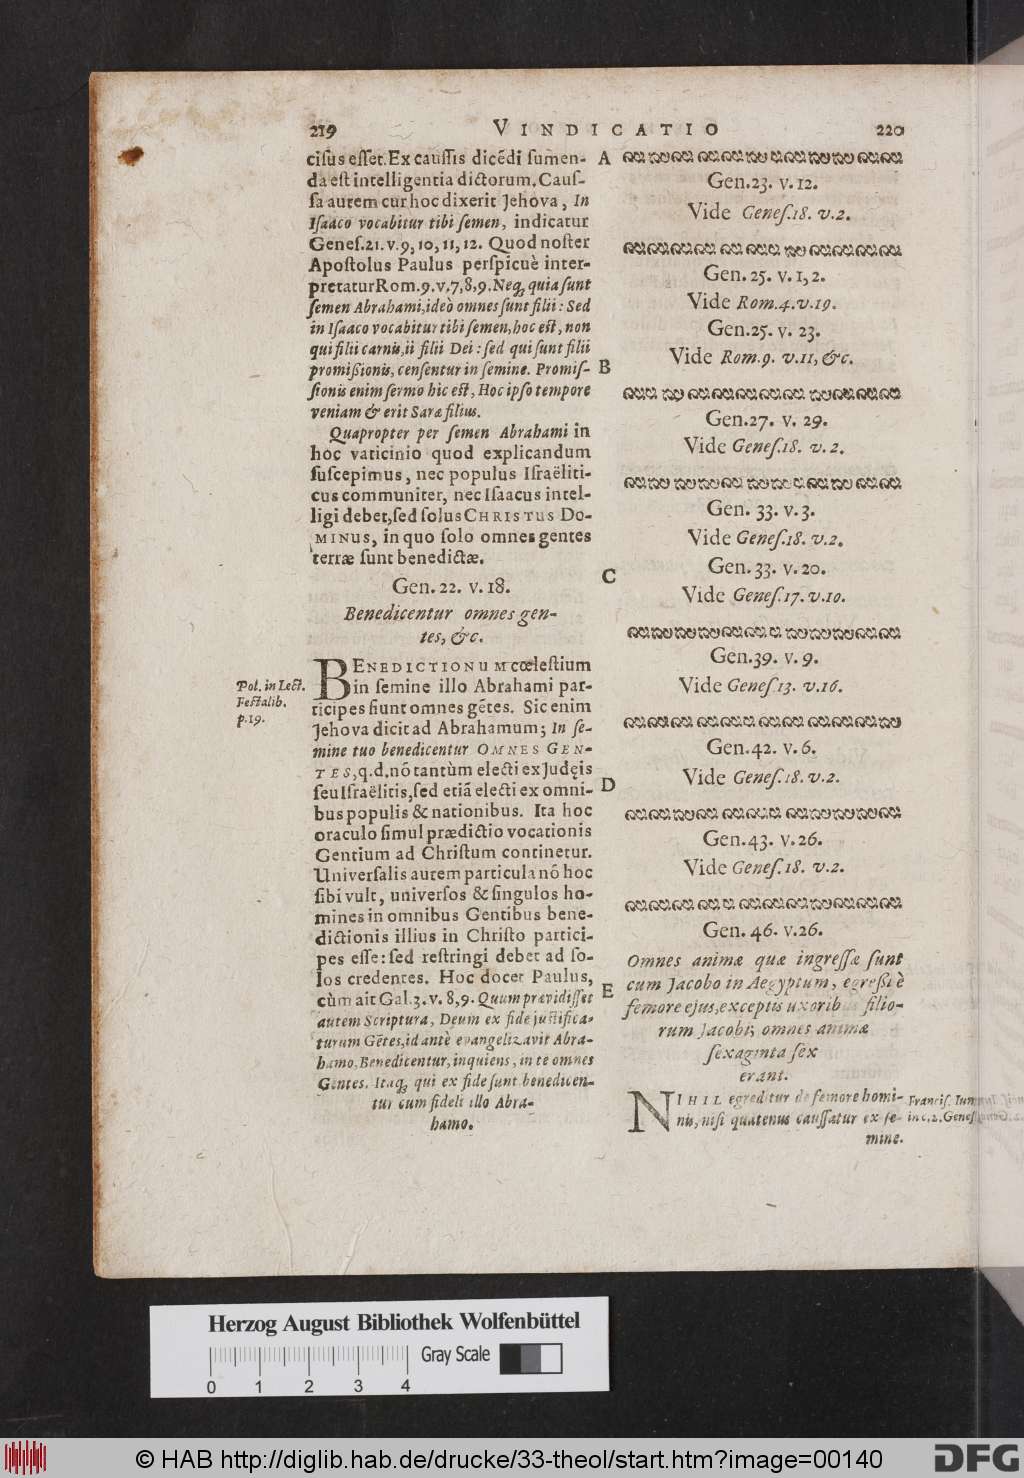 219
VINDICATIO
220
cisus esset. Ex caussis dicẽdi sumen-
da est intelligentia dictorum. Caus-
sa autem cur hoc dixerit Jehova, In
Isaaco vocabitur tibi semen, indicatur
Genes. 21. v. 9, 10, 11, 12. Quod noster
Apostolus Paulus perspicuè inter-
pretatur Rom. 9. v. 7, 8, 9. Neq; quia sunt
semen Abrahami, ideò omnes sunt filii: Sed
in Isaaco vocabitur tibi semen, hoc est, non
qui filii carnis, ii filii Dei: sed qui sunt filii
promißionis, censentur in semine. Promis-
sionis enim sermo hic est, Hoc ipso tempore
veniam & erit Saræ filius.
Quapropter per semen Abrahami in
hoc vaticinio quod explicandum
suscepimus, nec populus Israëliti-
cus communiter, nec Isaacus intel-
ligi debet, sed solus CHRISTUS DO-
MINUS, in quo solo omnes gentes
terræ sunt benedictæ.
Gen. 22. v. 18.
Benedicentur omnes gen-
tes, &c.
Pol. in Lect.
Festalib.
p. 19.
BENEDICTIONUM cœlestium
in semine illo Abrahami par-
ticipes fiunt omnes gẽtes. Sic enim
Jehova dicit ad Abrahamum; In se-
mine tuo benedicentur OMNES GEN-
TES, q.d. nõ tantùm electi ex Judęis
seu Israëlitis, sed etiã electi ex omni-
bus populis & nationibus. Ita hoc
oraculo simul prædictio vocationis
Gentium ad Christum continetur.
Universalis autem particula nõ hoc
sibi vult, universos & singulos ho-
mines in omnibus Gentibus bene-
dictionis illius in Christo partici-
pes esse: sed restringi debet ad so-
los credentes. Hoc docet Paulus,
cùm ait Gal. 3. v. 8, 9. Quum prævidisset
autem Scriptura, Deum ex fide justifica-
turum Gẽtes, id antè evangelizavit Abra-
hamo, Benedicentur, inquiens, in te omnes
Gentes. Itaq; qui ex fide sunt benedicen-
tur cum fideli illo Abra-
hamo.
A
B
C
D
E
Gen. 23. v. 12.
Vide Genes. 18. v. 2.
Gen. 25. v. 1, 2.
Vide Rom. 4. v. 19.
Gen. 25. v. 23.
Vide Rom. 9. v. 11, &c.
Gen. 27. v. 29.
Vide Genes. 18. v. 2.
Gen. 33. v. 3.
Vide Genes. 18. v. 2.
Gen. 33. v. 20.
Vide Genes. 17. v. 10.
Gen. 39. v. 9.
Vide Genes. 13. v. 16.
Gen. 42. v. 6.
Vide Genes. 18. v. 2.
Gen. 43. v. 26.
Vide Genes. 18. v. 2.
Gen. 46. v. 26.
Omnes animæ quæ ingressæ sunt
cum Jacobo in Aegyptum, egreßi è
femore ejus, exceptis uxoribus filio-
rum Jacobi; omnes animæ
sexaginta sex
erant.
NIHIL egreditur de femore homi-
nis, nisi quatenus caussatur ex se-
mine.
Francis. Jun.
in c. 2. Genes.
Herzog August Bibliothek Wolfenbüttel
Gray Scale
0 1 2 3 4
© HAB http://diglib.hab.de/drucke/33-theol/start.htm?image=00140
DFG